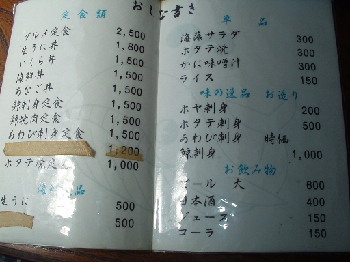 おしながき
定食類
グルメ定食 2,500
生うに丼 1,800
いくら丼 1,500
海鮮丼 1,500
あなご丼 1,500
鯨刺身定食 1,500
鯨焼肉定食 1,500
あわび刺身定食 1,500
1,200
ホタテ焼定食 1,000
品
生うに 500
500
単品
海藻サラダ 300
ホタテ焼 300
かに味噌汁 300
ライス 150
味の逸品 お造り
ホヤ刺身 200
ホタテ刺身 500
あわび刺身 時価
鯨刺身 1,000
お飲み物
ビール 大 600
日本酒 400
ジュース 150
コーラ 150